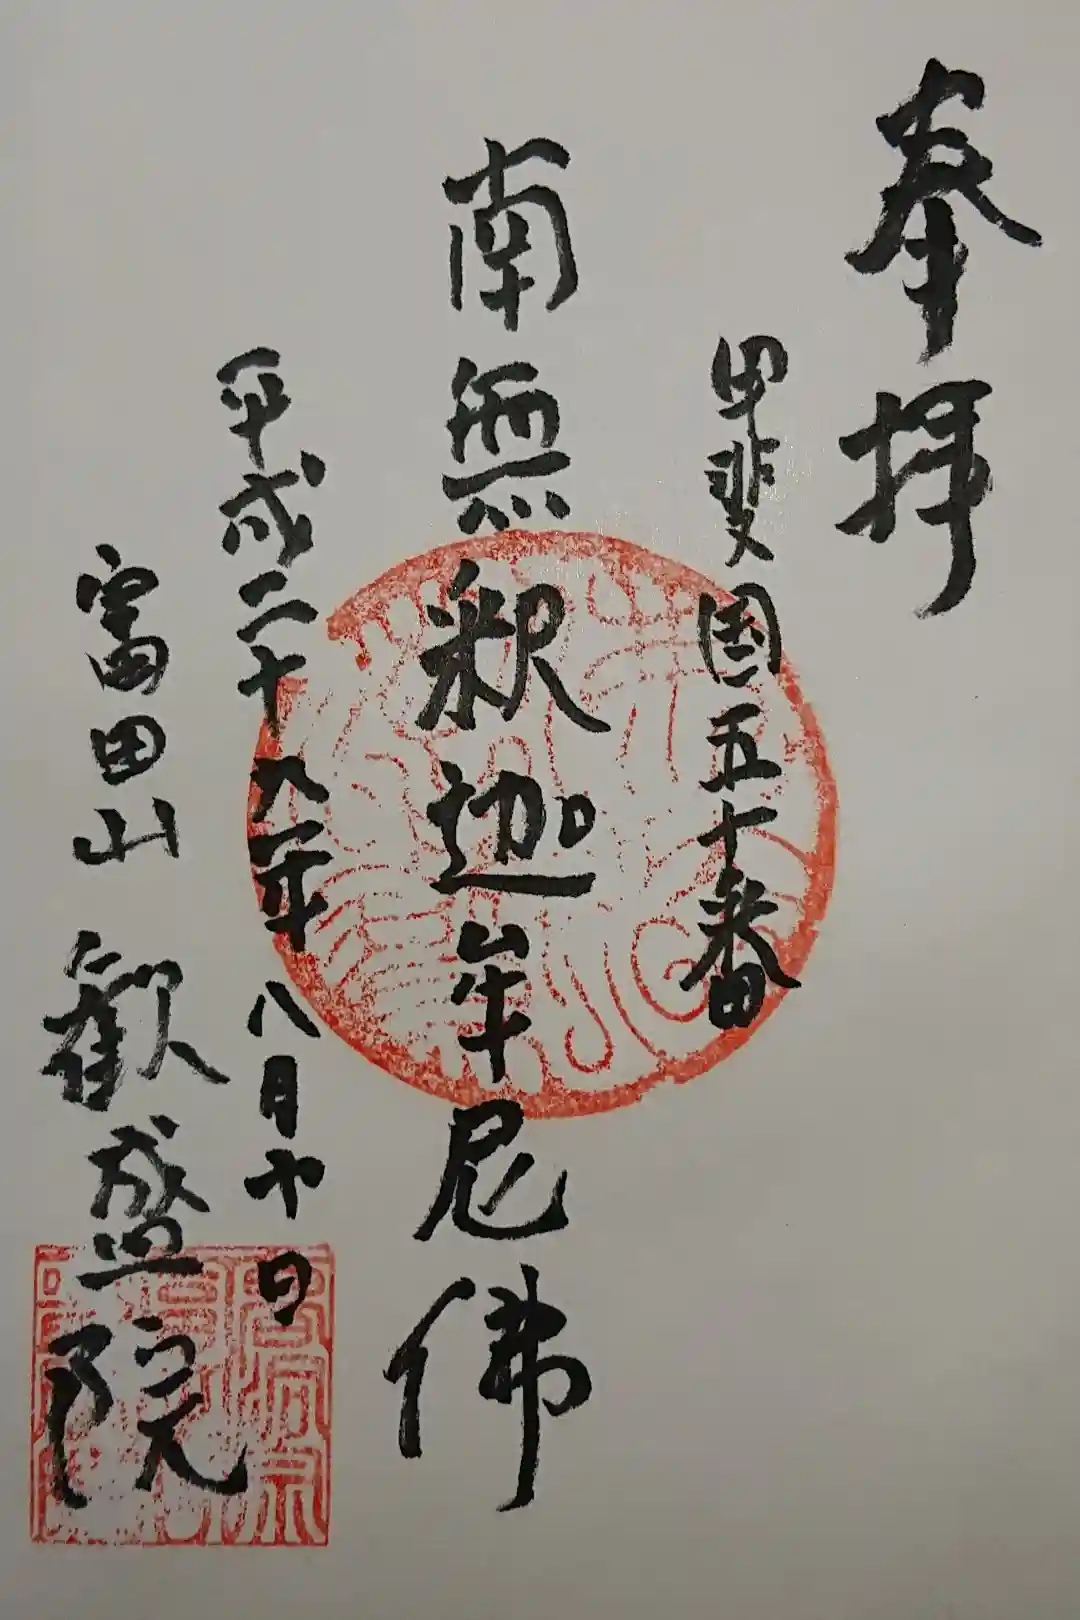 奉拝
甲斐国五十番
南無釈迦牟尼佛
平成二十九年八月十日
富田山 歓盛院